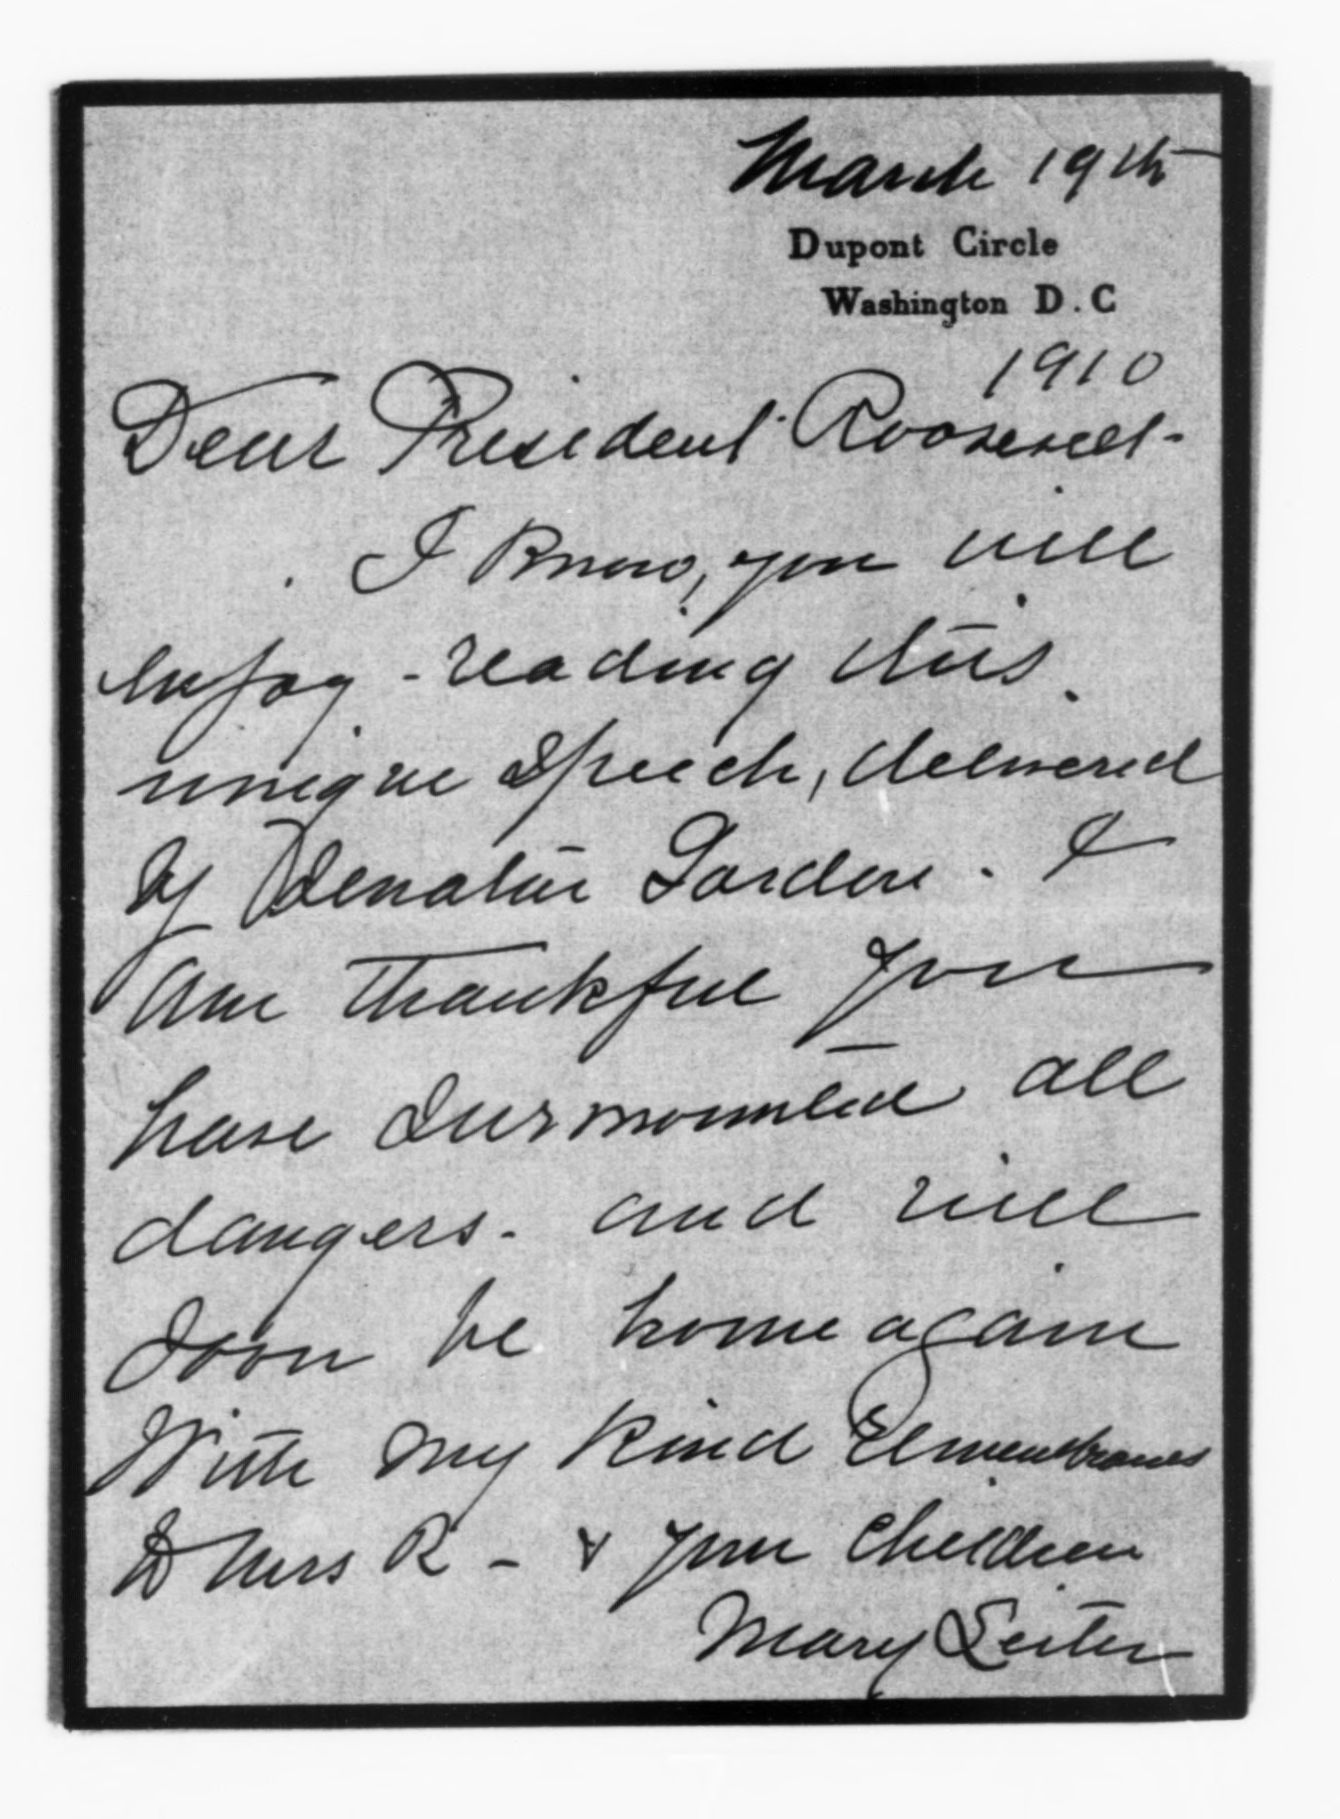 March 19th
Dupont Circle
Washington D.C
1910
Dear President Roosevelt-
I know, you will
enjoy - reading this
unique speech, delivered
by Senator Gordon. I
am thankful you
have surmounted all
dangers. and will
soon be home again
With my kind
to Mrs R - & your children
Mary Leiter